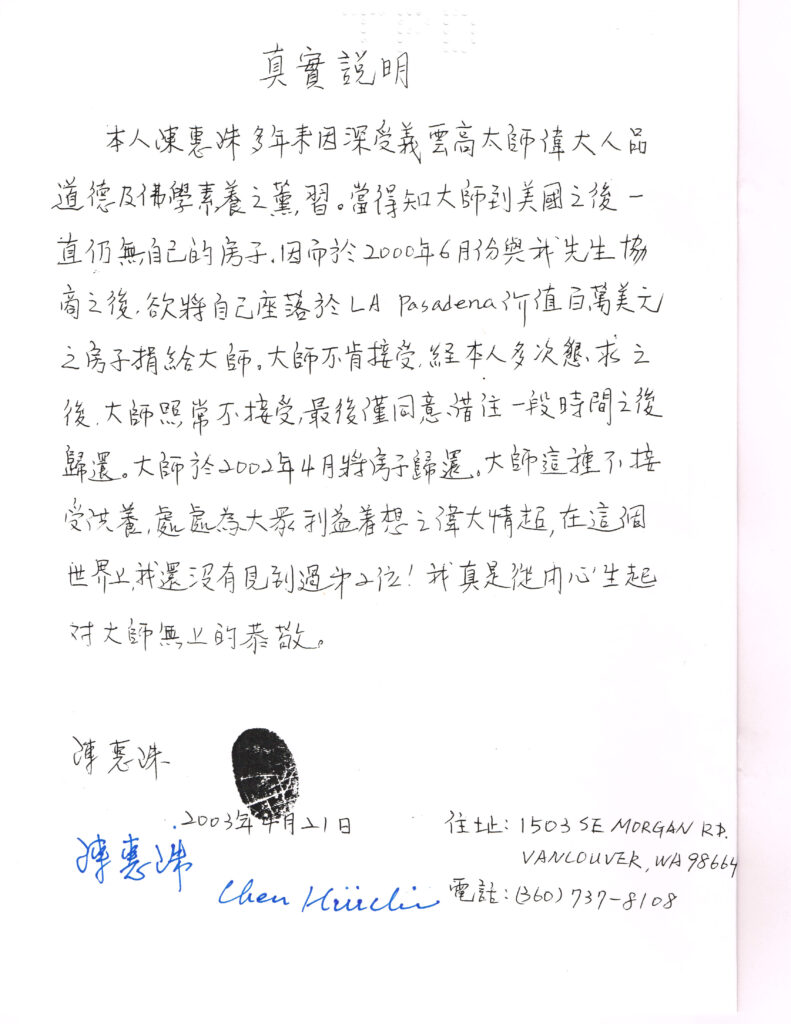 真實說明
本人陳惠姝多年來因深受義雲高大師偉大人品
道德及佛學素養之薰習。當得知大師到美國之後一
直仍無自己的房子,因而於2000年6月份與我先生協
商之後,欲將自己座落於LA Pasadena价值百萬美元
之房子捐給大師。大師不肯接受,經本人多次懇求之
後,大師照常不接受,最後僅同意借住一段時間之後
歸還。大師於2002年4月將房子歸還。大師這種不接
受供養,處處為大眾利益着想之偉大情超,在這個
世界上,我還沒有見到過第2位!我真是從內心生起
对大師無上的恭敬。
陳惠姝
2003年4月21日
住址:1503 SE MORGAN RD.
VANCOUVER, WA 98664
電話:(360) 737-8108
陳惠姝
Chen